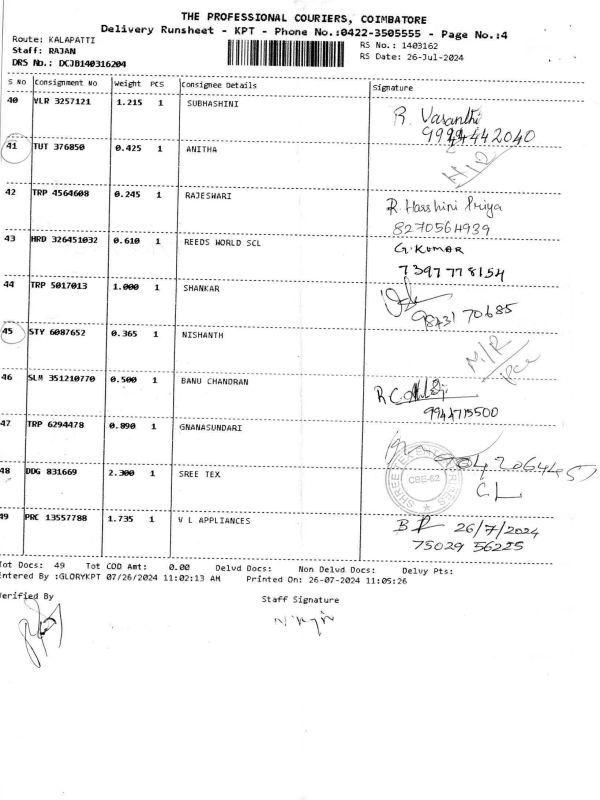 THE PROFESSIONAL COURIERS, COIMBATORE
Delivery Runsheet - KPT - Phone No.:0422-3505555 - Page No.:4
Route: KALAPATTI
Staff: RAJAN
DRS No.: DCJB140316204
RS No.: 1403162
RS Date: 26-Jul-2024
S No Consignment No Weight PCS Consignee Details Signature
40 VLR 3257121 1.215 1 SUBHASHINI R. Vasanthi
9944442040
41 TUT 376850 0.425 1 ANITHA
42 TRP 4564608 0.245 1 RAJESWARI R. Harshini Priya
8270564939
43 HRD 326451032 0.610 1 REEDS WORLD SCL G. KUMAR
7397778154
44 TRP 5017013 1.000 1 SHANKAR
98431 70685
45 STY 6087652 0.365 1 NISHANTH
46 SLM 351210770 0.500 1 BANU CHANDRAN
9944715500
47 TRP 6294478 0.890 1 GNANASUNDARI
48 DDG 831669 2.300 1 SREE TEX CBE-62
49 PRC 13557788 1.735 1 V L APPLIANCES 26/7/2024
75029 56225
Tot Docs: 49 Tot COD Amt: 0.00 Delvd Docs: Non Delvd Docs: Delvy Pts:
Entered By :GLORYKPT 07/26/2024 11:02:13 AM Printed On: 26-07-2024 11:05:26
Verified By Staff Signature